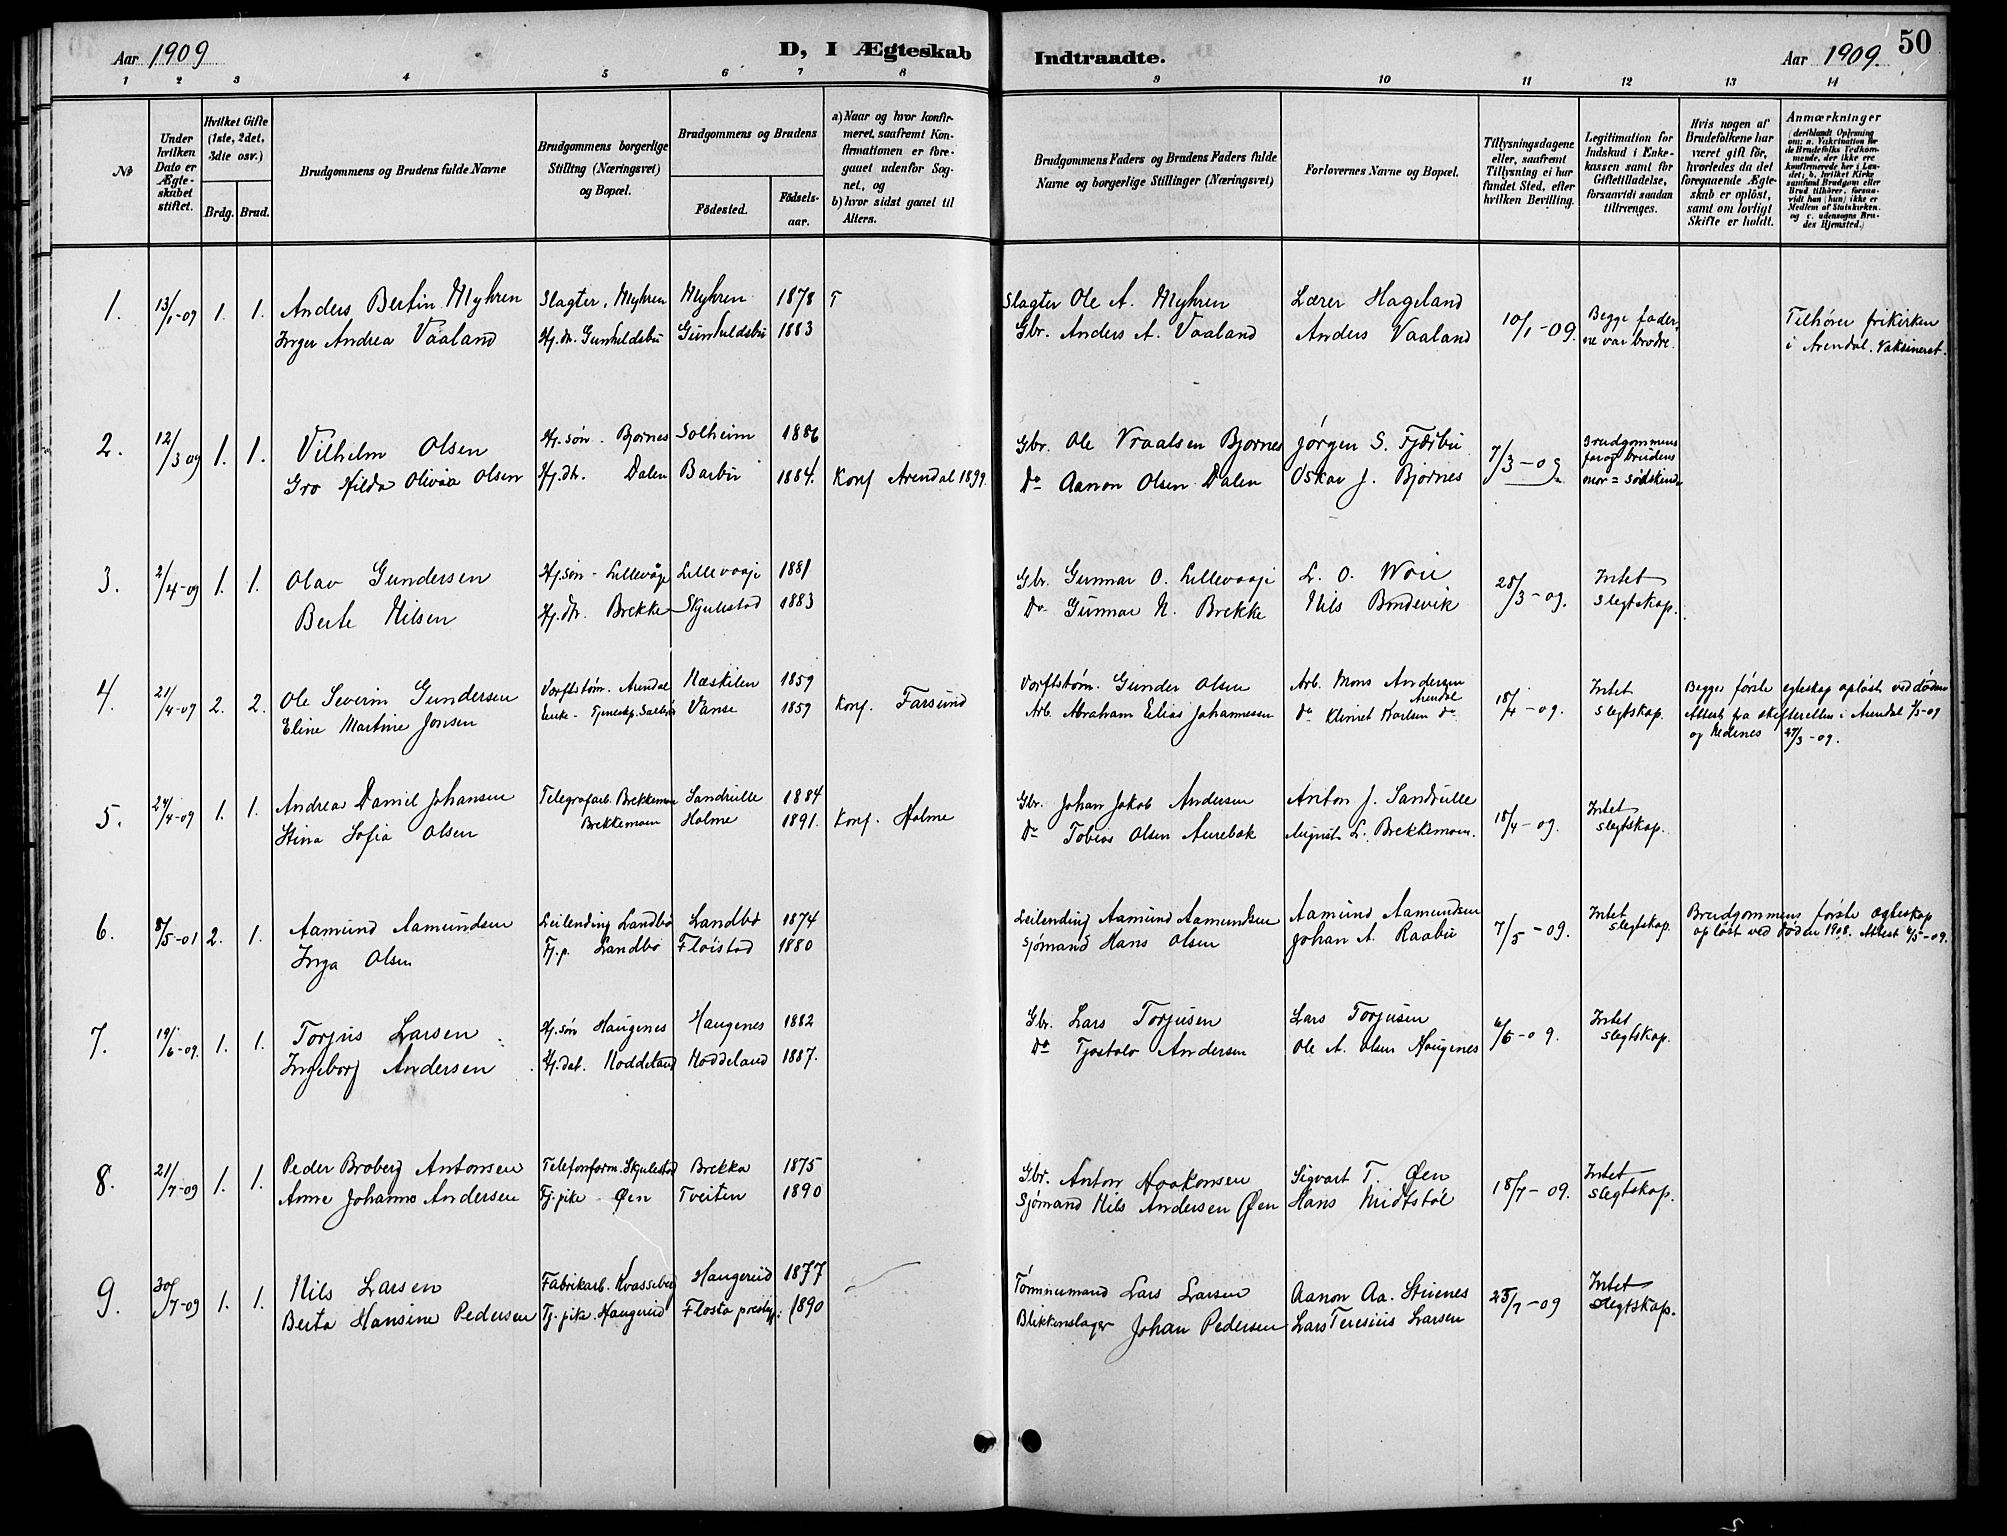 Aar 1909
D, I Ægteskab
Indtraadte.
Aar 1909.
50
1 2 3 4 5 6 7 8
9 10 11 12 13 14
No
Under hvilken Dato er Ægteskabet stiftet.
Hvilket Gifte (1ste, 2det, 3die osv.)
Brdg. Brud.
Brudgommens og Brudens fulde Navne
Brudgommens borgerlige Stilling (Næringsvei) og Bopæl.
Brudgommens og Brudens
Födested.
Födselsaar.
a) Naar og hvor konfirmeret, saafremt Konfirmationen er foregaaet udenfor Sognet, og
b) hvor sidst gaaet til Alters.
Brudgommens Faders og Brudens Faders fulde Navne og borgerlige Stillinger (Næringsvei)
Forlovernes Navne og Bopæl.
Tillysningsdagene eller, saafremt Tillysning ei har fundet Sted, efter hvilken Bevilling.
Legitimation for Indskud i Enkekassen samt for Giftetilladelse, forsaavidt saadan tiltrænges.
Hvis nogen af Brudefolkene har været gift för, hvorledes da det foregaaende Ægteskab er oplöst, samt om lovligt Skifte er holdt.
Anmærkninger
(deriblandt Oplysning om: a. Vakcination for de Brudefolks Vedkommende, der ikke ere konfirmerede her i Landet; b. hvilket Kirkesamfund Brudgom eller Brud tilhører, forsaavidt han (hun) ikke er Medlem af Statskirken, og c. udensogns Brudes Hjemsted.)
1. 13/1-09 1. 1. Anders Bertin Myhren Slagter, Myhren Myhren 1878 T Slagter Ole A. Myhren Lærer Hageland 10/1-09. Begge fader- Tilhører frikirken
Inger Andrea Vaaland Hj. dr. Gunhildsbu Gunhildsbu 1883 Gbr. Anders A. Vaaland Anders Vaaland ne var brødre. i Arendal. Vaksineret.
2. 12/3 09 1. 1. Vilhelm Olsen Hj. søn. Bjørnes Solheim 1886 Gbr. Ole Vraalsen Bjørnes Jørgen S. Fjærbu 7/3-09 Brudgommens
far og brudens
Gro Hilda Olivia Olsen Hj. dr. Dalen Barbu 1884. Konf Arendal 1899 Do Aanon Olsen Dalen Oskar J. Bjørnes mor = sødskende
3. 2/4-09 1. 1. Olav Gundersen Hj. søn - Lillevåje Lillevaaje 1881 Gbr. Gunnar O. Lillevaaje L. O. Woie 28/3-09. Intet
Berte Nilsen Hj. dr. Brekke Skjulestad 1883 Do Gunnar N. Brekke Nils Bondevik slegtskap.
4. 21/4-09 2. 2. Ole Severin Gundersen Verftstøm. Arendal Næskilen 1859 Verftstøm. Gunder Olsen Arb. Mons Andersen Arendal 18/4-09. Intet Begges første egteskap opløst ved døden
Eline Martine Jensen Enke - Vanse 1859 Konf. Farsund Arb. Abraham Elias Johannesen do Karlsen do slegtskap. Attest fra skifteretten i Arendal 1/3-09
og Nedenes 27/3-09.
5. 24/4-09 1. 1. Andreas Daniel Johansen Telegrafarb. Brekkemoen Sandrille 1884 Gbr. Johan Jakob Andersen Anton J. Sandrille 18/4-09. Intet
Stina Sofia Olsen Brekkemoen Holme 1891. Konf. Holme Do Tobias Olsen Aurebæk August L. Brekkemoen. slegtskap.
6. 8/5-01 2. 1. Aamund Aamundsen Leilending Landbø Landbø 1874 Leilending Aamund Aamundsen Aamund Aamundsen 7/5-09. Intet Brudgommens første ægteskap
Inga Olsen Tj. p. Landbø Fløistad 1880 Sjømand Hans Olsen Johan A. Raabu slegtskap. opløst ved døden 1908. Attest 6/5-09.
7. 19/6-09. 1. 1. Torjus Larsen Hj. søn Haugenes Haugenes 1882 Gbr. Lars Torjusen Lars Torjusen 6/6-09. Intet
Ingeborg Andersen Hj. dat. Noddeland Noddeland 1887. Do Tjostolv Andersen Ole A. Olsen Haugenes slegtskap.
8. 21/7-09 1. 1. Peder Broberg Antonsen Telefonform. Skjulestad Brekka 1875 Gbr. Anton Haakonsen Sigvart T. Øen 18/7-09. Intet
Anne Johanne Andersen Tj. pike Øen Tveiten 1890 Sjømand Nils Andersen Øen Hans Midtstøl slegtskap.
9. 30/7-09 1. 1. Nils Larsen Fabrikarb. Kvasseberg Haugereid 1877 Tømmermand Lars Larsen Aanon Aa. Stienes 25/7-09 Intet
Berta Hansine Pedersen Tj. pike. Haugereid Flosta prestgj: 1890 Blikkenslager Johan Pedersen Lars Teresius Larsen slegtskap.